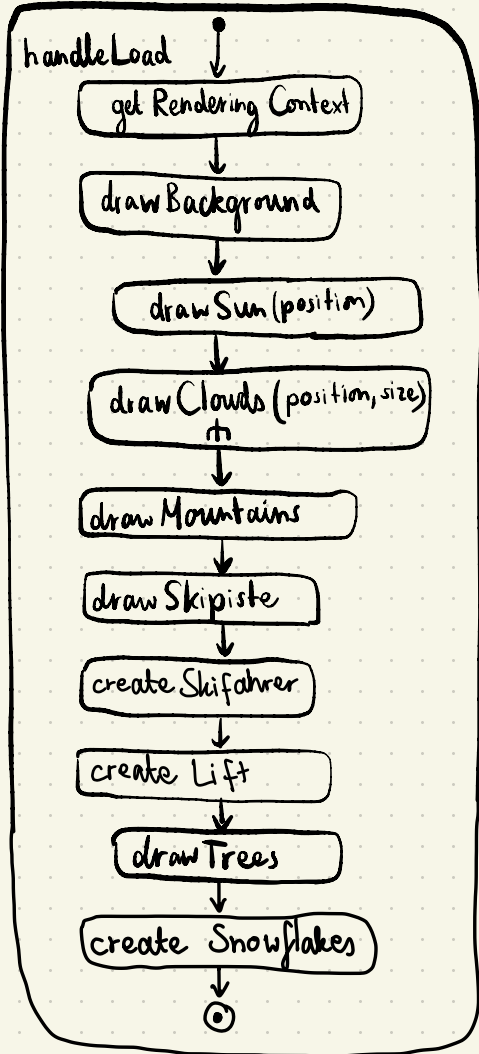 handleLoad
get Rendering Context
drawBackground
drawSun(position)
drawClouds(position, size)
drawMountains
drawSkipiste
createSkifahrer
create Lift
drawTrees
create Snowflakes